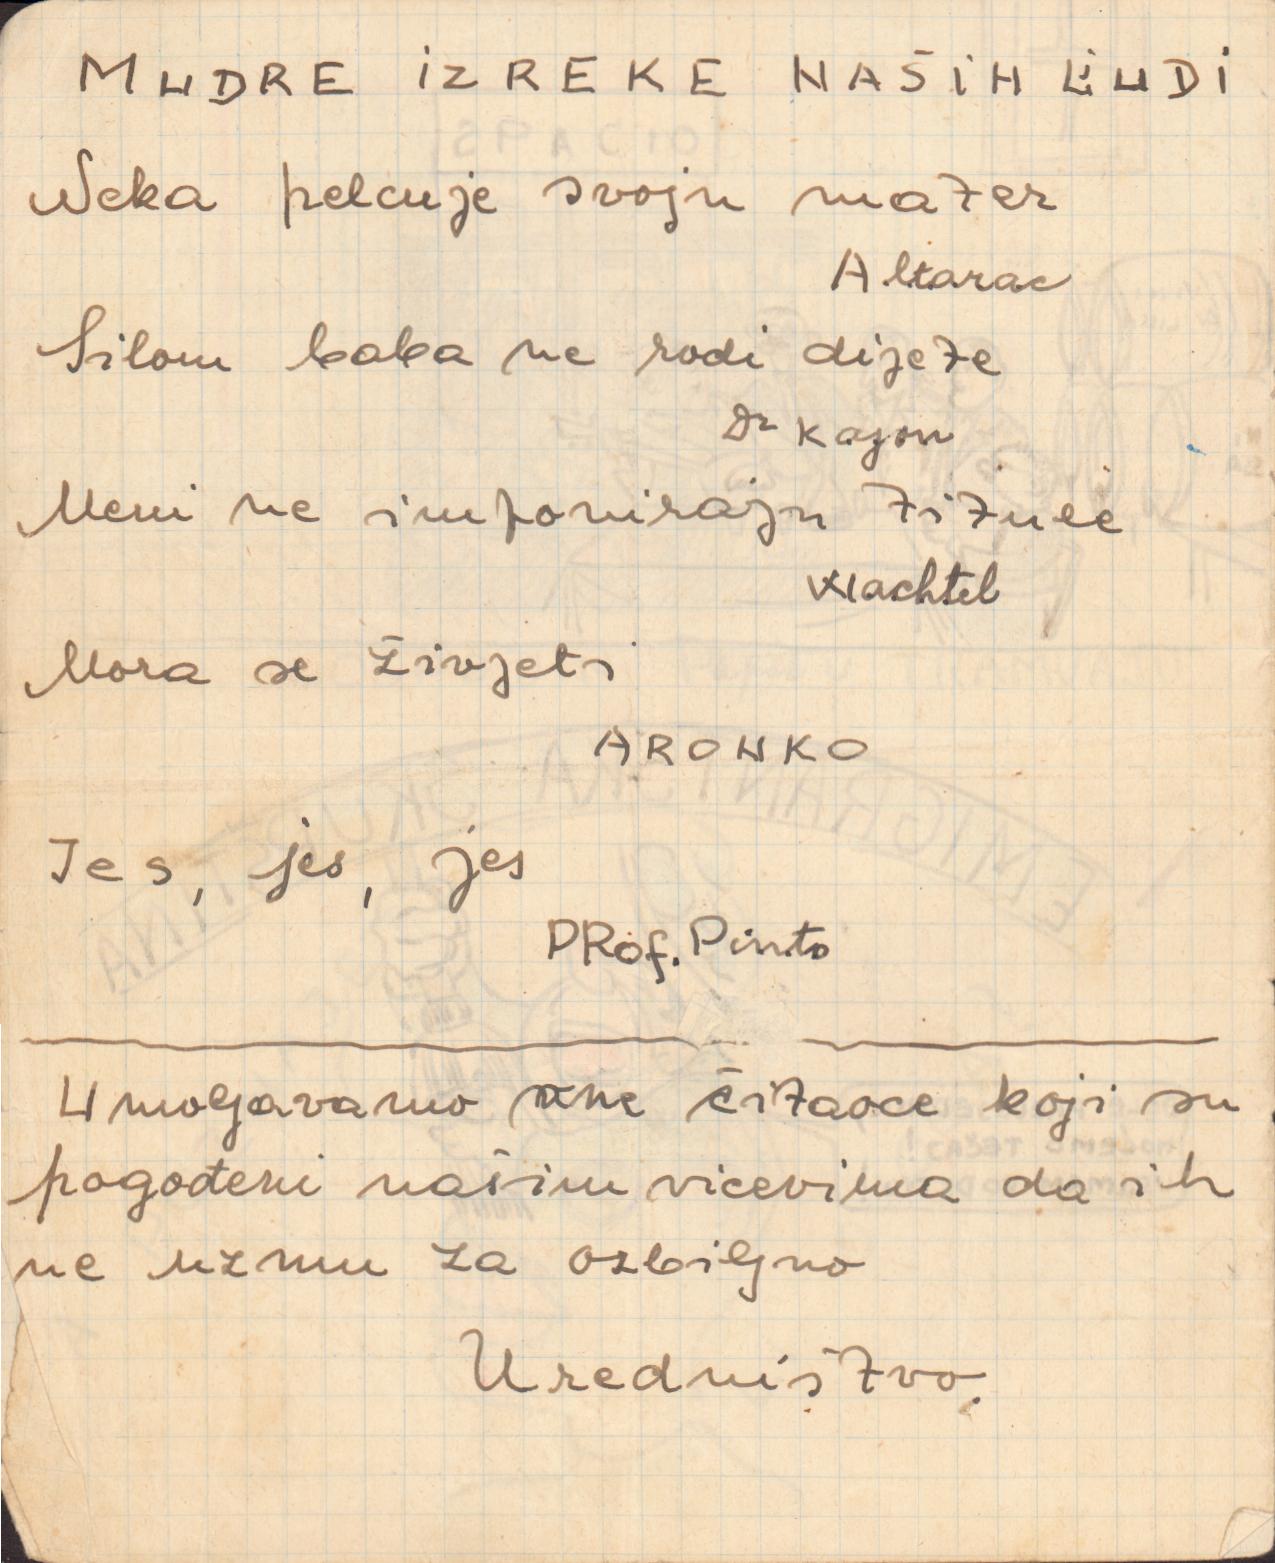 MUDRE IZREKE NAŠIH LJUDI
Neka pelcuje svoju mater
Altarac
Silom baba ne rodi dijete
Dr Kajon
Meni ne imponiraju titule
Wachtel
Mora se živjeti
ARONKO
Jes, jes, jes
PRof. Pinto
Umoljavamo one čitaoce koji su
pogođeni našim vicevima da ih
ne uzmu za ozbiljno
Uredništvo.